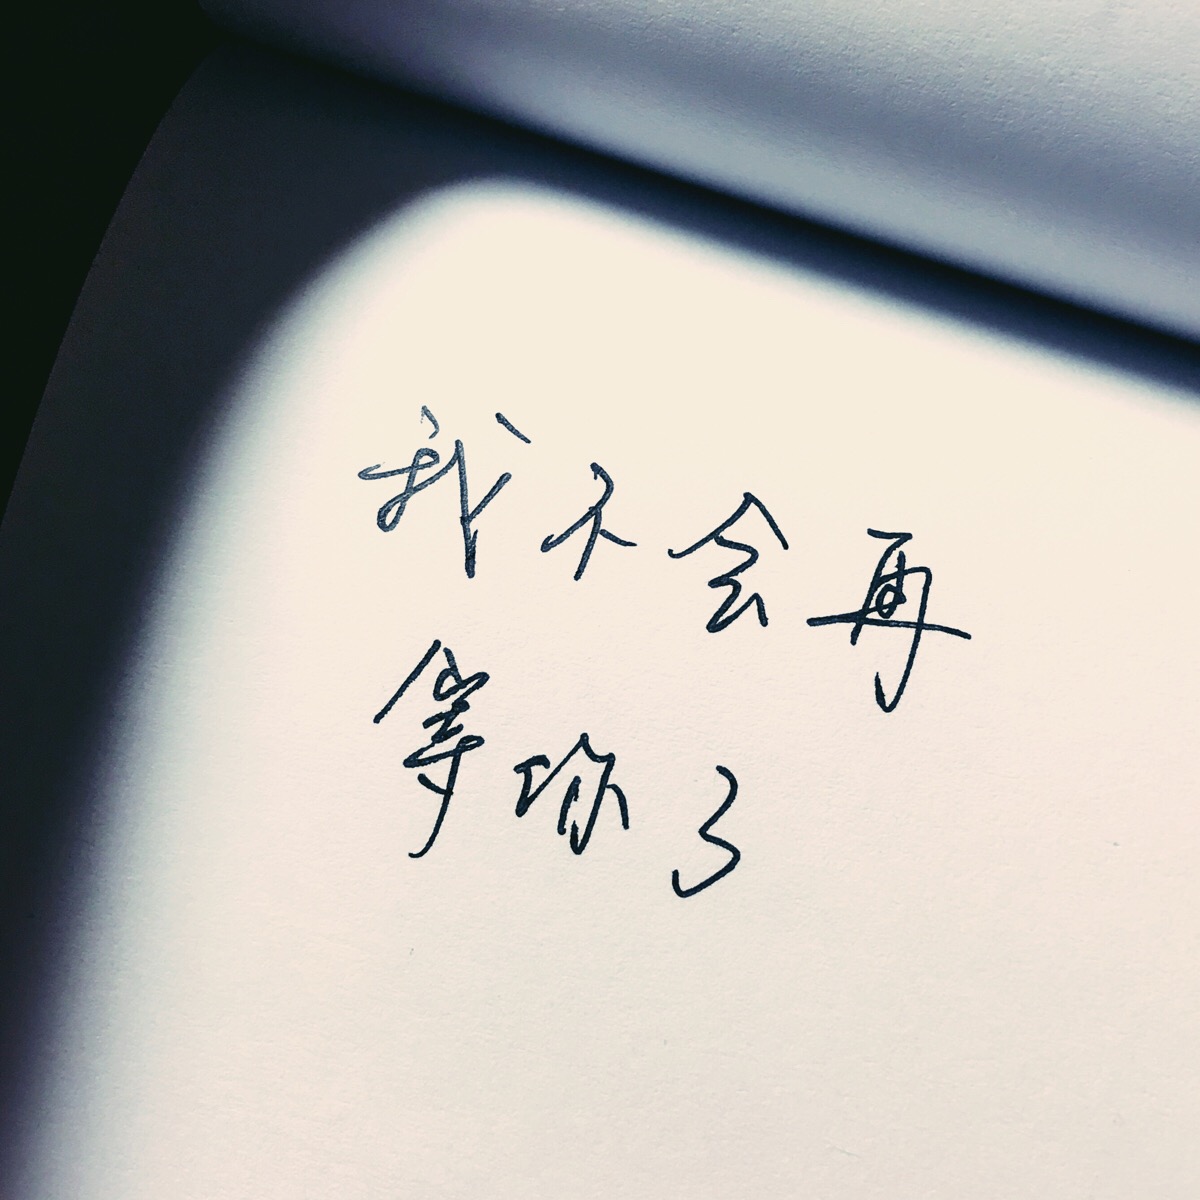 我不会再
等你了